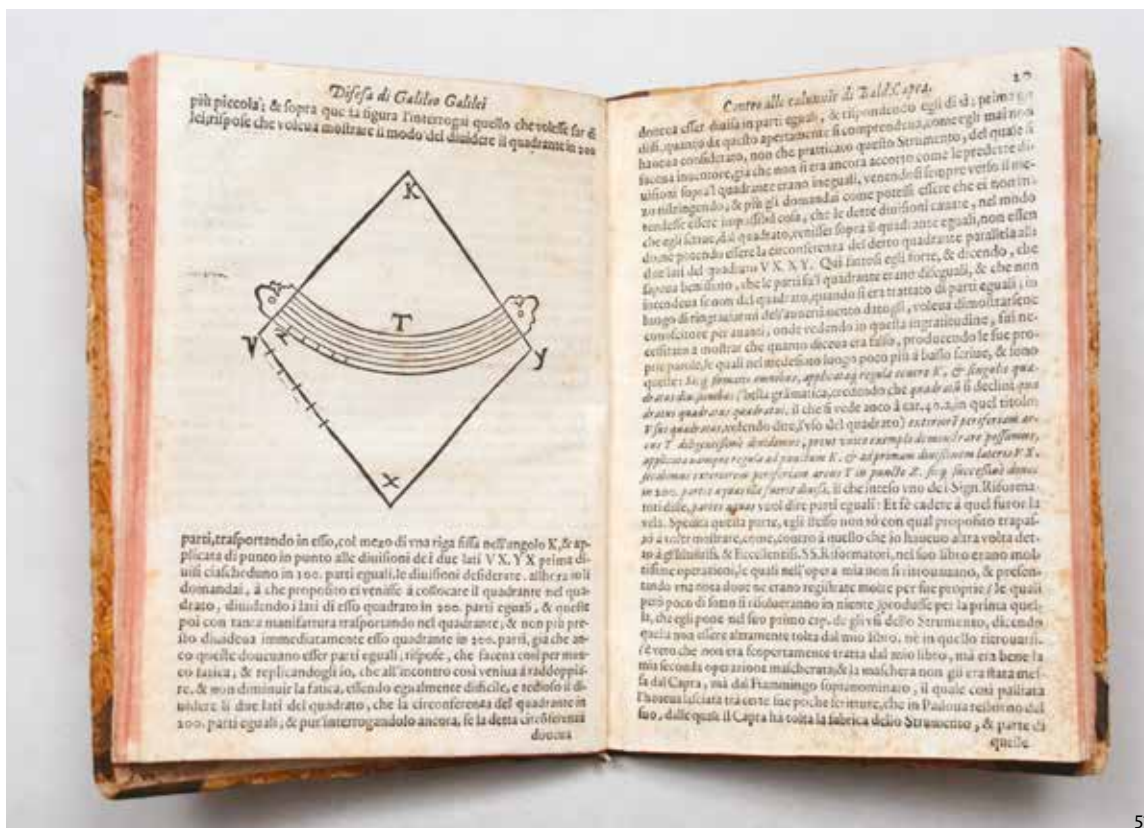 Difesa di Galileo Galilei
più piccola; & sopra que ta figura l'interrogai quello che volesse far di
lei, rispose che voleua mostrare il modo del diuidere il quadrante in 200
K
T
V
Z
Y
X
parti, trasportando in esso, col mezo di vna riga fissa nell'angolo K, & ap-
plicata di punto in punto alle diuisioni de i due lati VX. YX prima di-
uisi ciascheduno in 100. parti eguali, le diuisioni desiderate. allhora io li
domandai, à che proposito ei venisse à collocare il quadrante nel qua-
drato, diuidendo i lati di esso quadrato in 200. parti eguali, & queste
poi con tanta manifattura trasportando nel quadrante; & non più pre-
sto diuideua immediatamente esso quadrante in 200. parti, già che an-
co queste doueuano esser parti eguali; rispose, che faceua così per man-
co fatica; & replicandogli io, che all'incontro così veniua à raddoppia-
re, & non diminuir la fatica, essendo egualmente difficile, e tedioso il di-
uidere li due lati del quadrato, che la circonferenza del quadrante in
200. parti eguali; & pur'interrogandolo ancora, se la detta circonferenza
doueua
Contro alle calunnie di Bald. Capra.
doueua esser diuisa in parti eguali, & rispondendo egli di sì; prima
dissi, quanto da questo apertamente si comprendeua, come egli mai non
haueua considerato, non che pratticato questo Strumento, del quale si
faceua inuentore, già che non si era ancora accorto come le predette di-
uisioni sopra'l quadrante erano ineguali, venendosi sempre verso il me-
zo ristringendo; & più gli domandai come potessi essere che ei non in-
tendesse essere impossibil cosa, che le dette diuisioni cauate, nel modo
che egli scriue, dal quadrato, venisser sopra il quadrante eguali, non essen
do, ne potendo essere la circonferenza del detto quadrante parallela alla
due lati del quadrato VX. XY. Qui fattosi egli forte, & dicendo, che
sapeua benissimo, che le parti sù'l quadrante erano diseguali, & che non
intendeua se non del quadrato, quando si era trattato di parti eguali; in
luogo di ringratiarmi dell'auuertimento datogli, voleua dimostrarsene
conoscitore per auanti, onde vedendo in questa ingratitudine, fui ne-
cessitato a mostrar che quanto diceua era falso, producendo le sue pro-
prie parole, le quali nel medesimo luogo poco più à basso scriue, & sono
queste: Sicq; firmatis omnibus, applicataq; regula centro K. & singulis qua-
dratus diuisionibus (bella grãmatica, credendo che quadratũ si declini qua
dratus quadratus quadratui. il che si vede anco à car. 40.2, in quel titolo:
Vsus quadratus, volendo dire, l'vso del quadrato) exteriorẽ periferiam ar-
cus T diligentissimè diuidemus, prout vnico exemplo demonstrare possumus,
applicata namque regula ad punctum K. & ad primam diuisionem lateris VX.
secabimus exteriorem periferiam arcus T in puncto Z. sicq; successiuè donec
in 200. partes aquas illa fuerit diuisa, il che inteso vno de i Sign. Riforma-
tori disse, partes aquas vuol dire parti eguali: Et fè cadere à quel furor la
vela. Spedita questa parte, egli stesso non sò con qual proposito trapas-
sò à voler mostrare, come, contro à quello che io haueuo altra volta det-
to à gl'Illustriss. & Eccellentiss. SS. Riformatori, nel suo libro erano mol-
tissime operationi, le quali nell'opera mia non si ritrouauano, & presen-
tando vna nota doue ne erano registrate molte per sue proprie (le quali
però poco di sotto si risolueranno in niente) produsse per la prima quel-
la, che egli pone nel suo primo cap. de gli vsi dello Strumento, dicendo
quella non essere altramente tolta dal mio libro, nè in quello ritrouarsi.
è vero che non era scopertamente tratta dal mio libro, mà era bene la
mia seconda operatione mascherata, & la maschera non gli era stata mes-
sa dal Capra, mà dal Fiammingo sopranominato, il quale così palliata
l'haueua lasciata tra certe sue poche scritture, che in Padoua restorno del
suo, dalle quali il Capra hà tolta la fabrica dello Strumento, & parte di
quelle
5